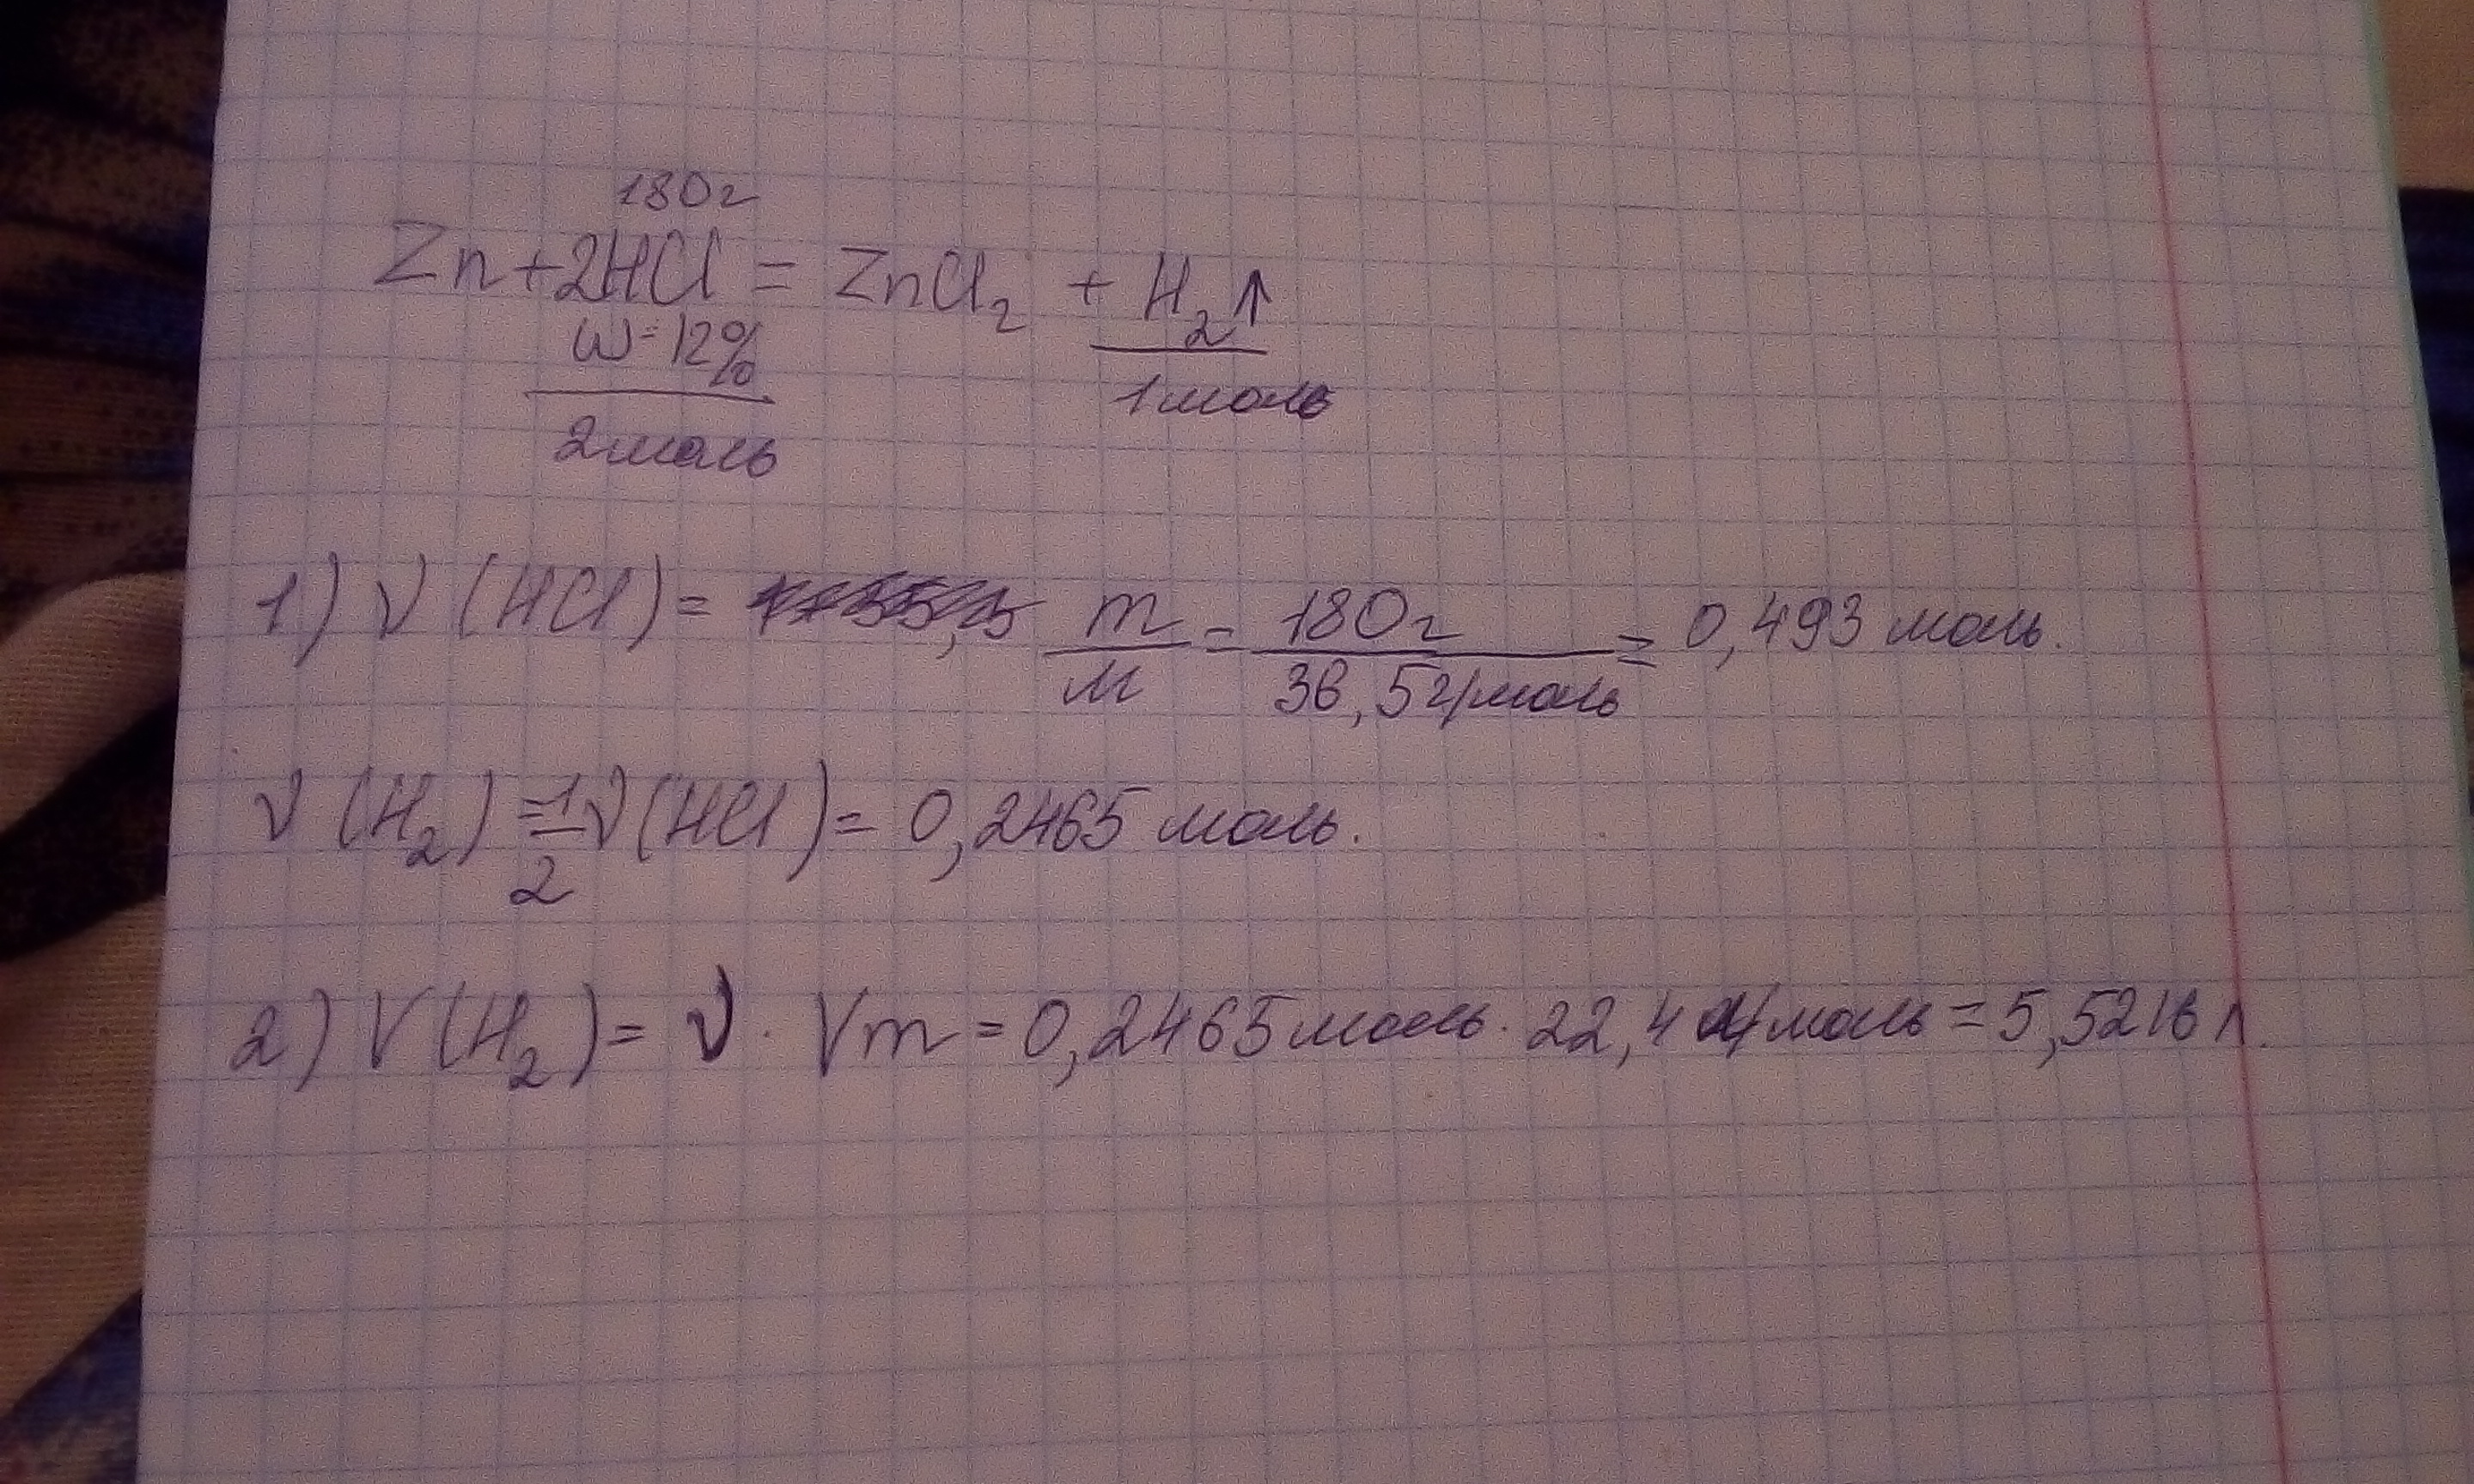 180г
Zn+2HCl = ZnCl₂ + H₂↑
ω=12%
2моль 1моль
1) ν (HCl)= m/M = 180г/36,5г/моль = 0,493 моль.
ν (H₂) =1/2ν(HCl)= 0,2465 моль.
2) V(H₂)= ν · Vm = 0,2465моль · 22,4 л/моль = 5,5216 л.